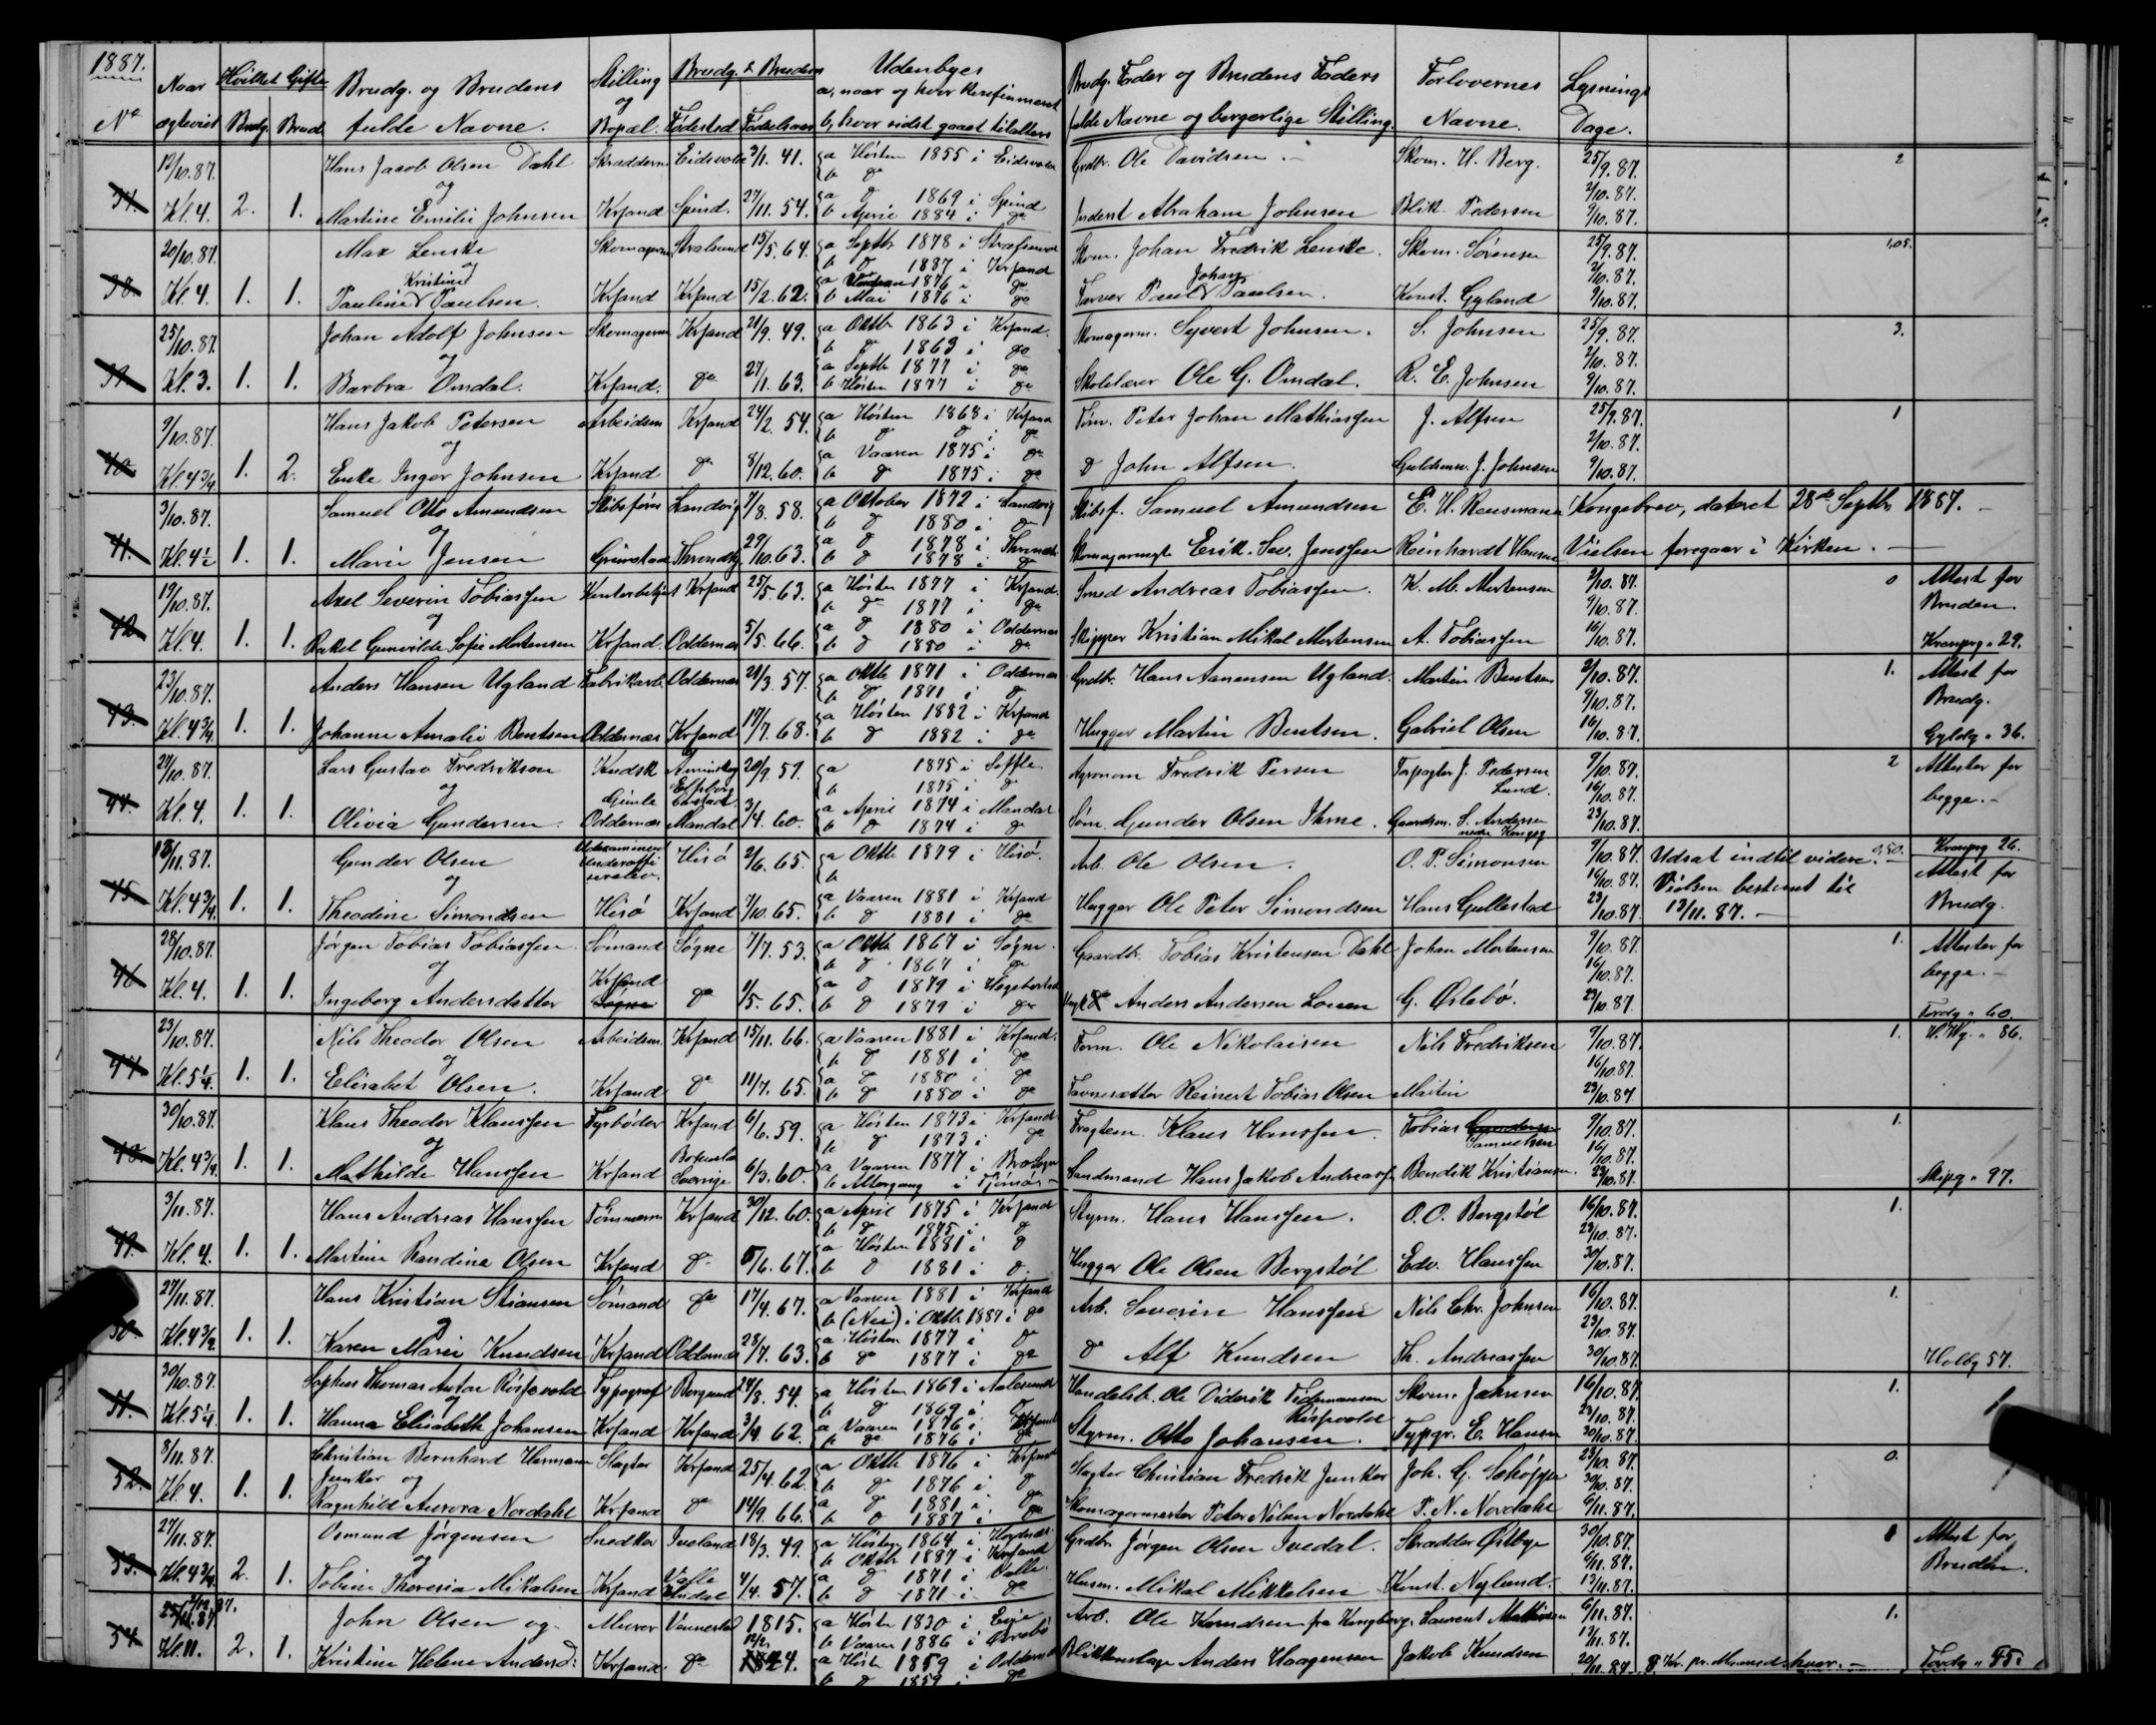 1887.
No
Naar ægteviet
Hvilket Gifte
Brudg. Brud
Brudg. og Brudens fulde Navne.
Stilling og Bopæl.
Brudg. & Brudens
Fødested Fødselsaar
Udenbyes
a, naar og hvor Konfirmeret
b, hvor sidst gaaet til alters
Brudg. Fader og Brudens Faders fulde Navne og borgerlige Stilling.
Forlovernes Navne.
Lysnings Dage.
12/10.87. Hans Jacob Olsen Dahl Skrædderm Eidsvold 3/1. 41. a Høsten 1855 i Eidsvold Grdbr. Ole Davidsen Skom. H. Berg. 25/9.87. 2
og b do 2/10.87.
37. Kl. 4. 2. 1. Martine Emilie Johnsen Krsand Spind. 27/11. 54. a do 1869 i Spind b April 1884 i do Inderst Abraham Johnsen Blik. Pedersen 9/10.87.
20/10.87. Max Lenske Skomagerm Stralsund 15/5. 64. a Septbr 1878 i Stralsund b do 1887 i Krsand Skom. Johan Fredrik Lenske. Skom. Sørensen 25/9.87. 1,05.
og 2/10.87.
38. Kl. 4. 1. 1. Pauline Kristine Paulsen. Krsand Krsand 15/2. 62. a 1876 i do b Mai 1876 i do Farver Paul Johan Paulsen. Konst. Gyland 9/10.87.
25/10.87. Johan Adolf Johnsen Skomagerm Krsand 21/9. 49. a Oktbr 1863 i Krsand. b do 1863 i do Skomagerm. Syvert Johnsen. S. Johnsen 25/9.87. 3.
og 2/10.87.
39. Kl. 3. 1. 1. Barbra Omdal. Krsand. do 27/1. 63. a Septbr 1877 i do b Høsten 1877 i do Skolelærer Ole G. Omdal. R. E. Johnsen 9/10.87.
9/10.87. Hans Jakob Petersen Arbeidsm Krsand 24/2. 54. a Høsten 1868 i Krsand b do do i do Tøm. Peter Johan Mathiassen J. Alfsen 25/9.87. 1
og 2/10.87.
40. Kl. 4 3/4 1. 2. Enke Inger Johnsen Krsand do 8/12.60. a Vaaren 1875 i do b do 1875 i do do John Alfsen. Guldsm. J. Johnsen 9/10.87.
3/10.87. Samuel Otto Amundsen Skibsfører Landvig 7/8. 58. a Oktober 1872 i Landvig b do 1880 i do Skibsf. Samuel Amundsen E. H. Reusmann Kongebrev, dateret 28de Septbr 1887. -
og
41. Kl. 4 1/2 1. 1. Marie Jensen Grimstad Throndhj 29/10.63. a do 1878 i Throndh b do 1878 i do Skomagermstr Erik Sev. Jenssen Reinhardt Hansen Vielsen foregaar i Kirken. -
19/10.87. Axel Severin Tobiassen Kontorbetjent Krsand 25/5. 63. a Høsten 1877 i Krsand. b do 1877 i do Smed Andreas Tobiassen. K. M. Mortensen 2/10.87. 0 Attest for
og 9/10.87. Bruden.
42. Kl. 4. 1. 1. Rakel Gunvilde Sofie Mortensen Krsand. Oddernæs 5/5. 66. a do 1880 i Oddernæs b do 1880 i do Skipper Kristian Mikal Mortensen A. Tobiassen 16/10.87. Kronprg. 29.
23/10.87. Anders Hansen Ugland Fabrikarb. Oddernæs 21/3. 57. a Oktbr 1871 i Oddernæs b do 1871 i do Grdbr. Hans Aanensen Ugland. Martin Bentsen 2/10.87. 1. Attest for
9/10.87. Brudg.
43. Kl. 4 3/4. 1. 1. Johanne Amalie Bentsen Oddernæs Krsand 17/7. 68. a Høsten 1882 i Krsand b do 1882 i do Hugger Martin Bentsen. Gabriel Olsen 16/10.87. Gyldg. 36.
27/10.87. Lars Gustav Fredrikson Kudsk Aminskog Elfsborg 20/9. 59. a 1875 i Seffle b 1875 i do Agronom Fredrik Persen Forpagter J. Pedersen Lund. 9/10.87. 2 Attester for
og 16/10.87. begge. -
44. Kl. 4. 1. 1. Olivia Gundersen. Gimle Oddernæs Mandal 3/4. 60. a April 1874 i Mandal b do 1874 i do Søm. Gunder Olsen Ihme. Gaardsm. S. Andersen nedre Kongsg 23/10.87.
13/11.87. Gunder Olsen Underoffi Hisø 2/6. 65. a Oktbr 1879 i Hisø. b Arb. Ole Olsen. O. P. Simonsen 9/10.87. Udsat indtil videre. 0,50. - Kronprg 26.
og 16/10.87. Vielsen bestemt til Attest for
45. Kl. 4 3/4. 1. 1. Theodine Simondsen Hisø Krsand 7/10. 65. a Vaaren 1881 i Krsand b do 1881 i do Hugger Ole Peter Simondsen Hans Gullestad 23/10.87. 13/11.87. - Brudg.
28/10.87. Jørgen Tobias Tobiassen Sømand Søgne 7/7. 53. a Oktbr 1867 i Søgne. b do 1867 i do Gaardbr. Tobias Kristensen Dahl Johan Mortensen 9/10.87. 1. Attester for
og 16/10.87. begge. -
46. Kl. 4. 1. 1. Ingeborg Andersdatter Krsand Søgne do 1/5. 65. a do 1879 i Hegebostad b do 1879 i do Anders Andersen G. Øslebø. 23/10.87. Tordg. 60.
23/10.87. Nils Theodor Olsen Arbeidsm. Krsand 15/11. 66. a Vaaren 1881 i Krsand. b do 1881 i do Form. Ole Nikolaisen Nils Fredriksen 9/10.87. 1. V. Wg. 86.
og 16/10.87.
47. Kl. 5 1/4. 1. 1. Elisabet Olsen. Krsand do 11/7. 65. a do 1880 i do b do 1880 i do Favnesætter Reinert Tobias Olsen Martin 23/10.87
30/10.87. Klaus Theodor Klaussen Fyrbøder Krsand 6/6. 59. a Høsten 1873 i Krsand b do 1873 i do Fragtem. Klaus Hanssen. Tobias Samuelsen 9/10.87. 1.
og 16/10.87.
48. Kl. 4 3/4. 1. 1. Mathilde Hanssen Krsand Sverrige 6/3. 60. a Vaaren 1877 i Bro Sogn b Altergang i Sandmand Hans Jakob Andreassen Bendik Kristiansen. 23/10.87. Skipg. 97.
3/11.87. Hans Andreas Hanssen Tømmerm Krsand 30/12. 60. a April 1875 i Krsand b do 1875 i do Styrm. Hans Hanssen. O. O. Bergstøl 16/10.87. 1.
23/10.87.
49. Kl. 4. 1. 1. Martine Randine Olsen Krsand do 5/6. 67. a Høsten 1881 i do b do 1881 i do Hugger Ole Olsen Bergstøl Edv. Hanssen 30/10.87.
27/11.87. Hans Kristian Stiansen Sømand do 17/4. 67. a Vaaren 1881 i Krsand b (Nei) i Oktbr 1887 i do Arb. Severin Hanssen Nils Chr. Johnsen 16/10.87. 1.
og 23/10.87.
50. Kl. 4 3/4. 1. 1. Karen Marie Knudsen Krsand Oddernæs 28/7. 63. a Høsten 1877 i do b do 1877 i do do Alf Knudsen Th. Andreassen 30/10.87. Holbg 57.
30/10.87. Sophus Thomas Anton Typograf Borgund 24/8. 54. a Høsten 1869 i Aalesund b do 1869 i do Handelsb. Ole Diderik Tidemansen Skom. Johnsen 16/10.87. 1.
og 23/10.87.
51. Kl. 5 1/4. 1. 1. Hanna Elisabeth Johansen Krsand Krsand 3/4. 62. a Vaaren 1876 i Krsand b do 1876 i do Styrm. Otto Johansen. Typgr. E. Hansen 30/10.87.
8/11.87. Christian Bernhard Hermann Junker og Slagter Krsand 25/4. 62. a Oktbr 1876 i Krsand b do 1876 i do Slagter Christian Fredrik Junker Joh. G. Schøpper 23/10.87. 0.
30/10.87.
52. Kl. 4. 1. 1. Ragnhild Aurora Nordahl Krsand do 14/9. 66. a do 1881 i do b do 1887 i do Skomagermester Peter Nilsen Nordahl P. N. Nordahl 6/11.87.
27/11.87. Osmund Jørgensen Snedker Iveland 18/3. 49. a Høsten 1864 i b Oktbr 1887 i Krsand Grdbr. Jørgen Olsen Ivedal. Skrædder Østbye 30/10.87. 1 Attest for
og 6/11.87. Bruden.
53. Kl. 4 3/4. 2. 1. Tobine Theresia Mikalsen Krsand Valle 4/4. 57. a do 1871 i Valle. b do 1871 i do Husm. Mikal Mikkelsen Konst. Nylund. 13/11.87.
2/12.87. John Olsen og Murer Vennesla 1815. a Høsten 1830 i Evje b Vaaren 1886 i Øvrebø Arb. Ole Knudsen fra Kongsberg. Laurent Mathisen 6/11.87. 1.
13/11.87.
54. Kl. 11. 2. 1. Kristine Helene Andersd: Krsand. do 12/2. 1844. a Høst 1859 i Oddernæs b do 1859 i do Blikkenslager Anders Haagensen Jakob Knudsen 20/11.87. 8 Kr. pr. Maaned hver. - Tordg. 45.